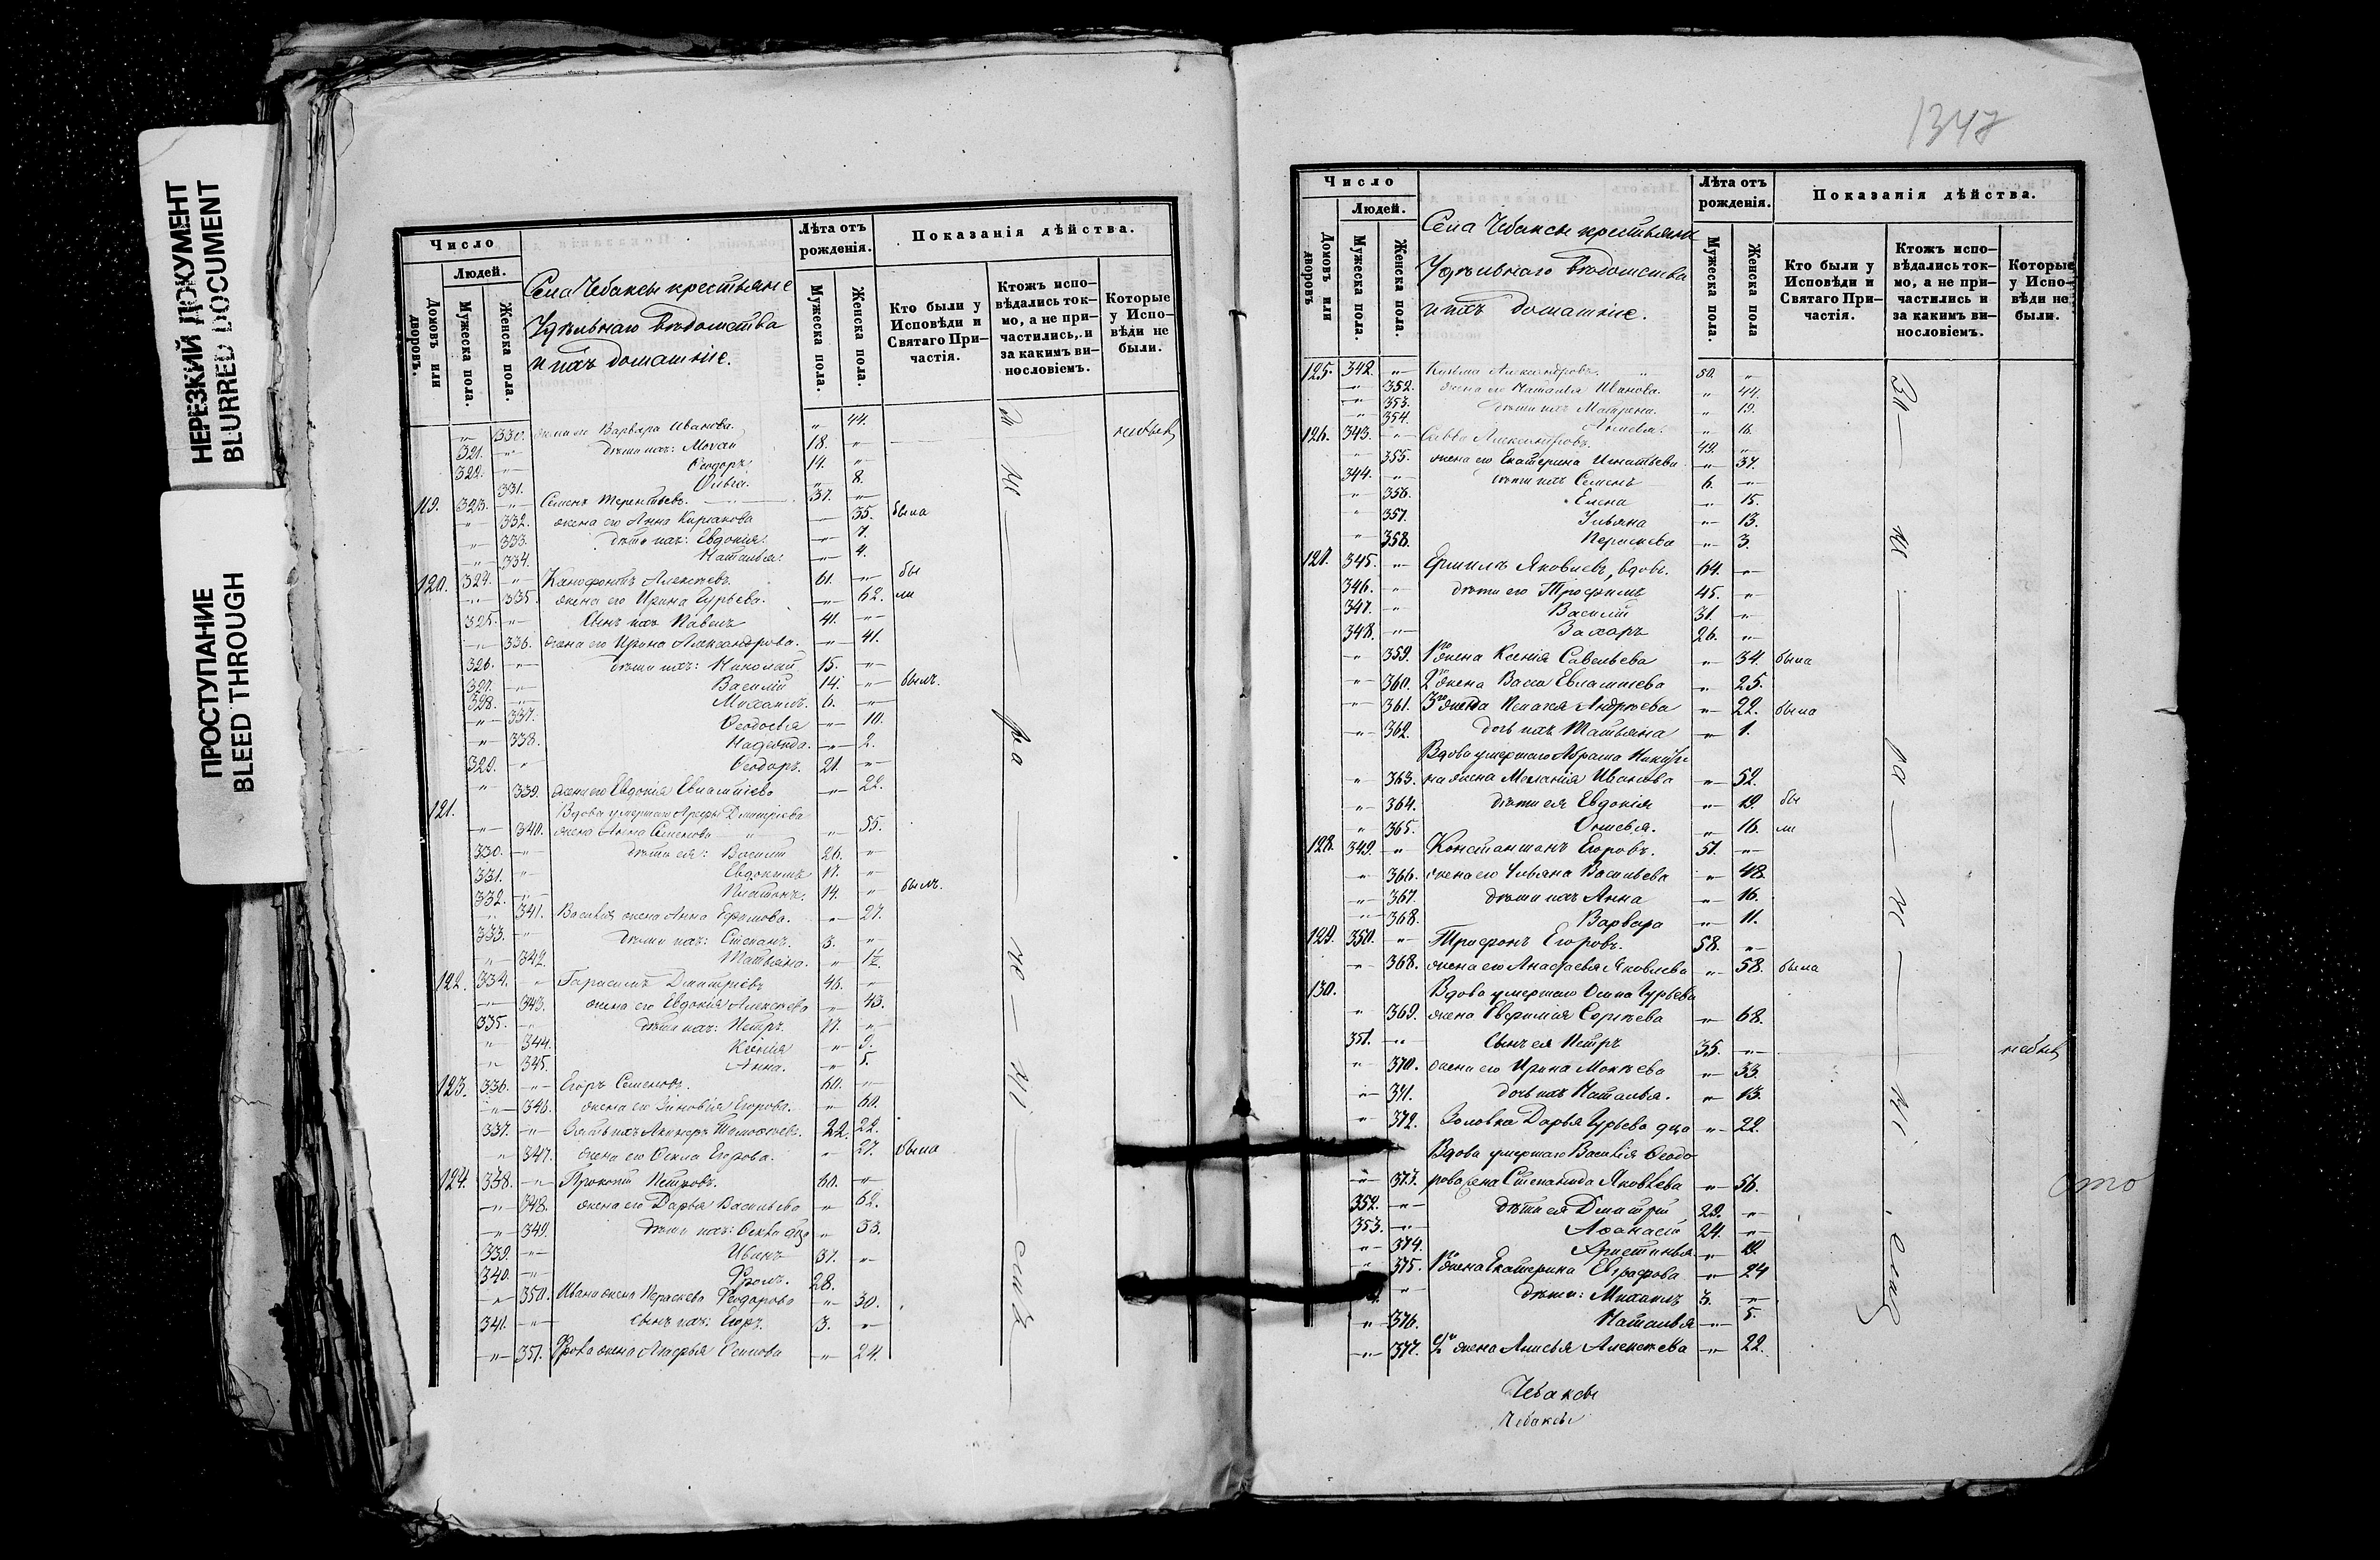 НЕРЕЗКИЙ ДОКУМЕНТ
BLURRED DOCUMENT
ПРОСТУПАНИЕ
BLEED THROUGH
Число
Людей.
Домовъ или дворовъ.
Мужеска пола.
Женска пола.
Села Чебаксы крестьяне
Удѣльнаго вѣдомства
и ихъ домашніе.
Лѣта отъ рожденія.
Мужеска пола.
Женска пола.
Показанія дѣйства.
Кто были у Исповѣди и Святаго Причастія.
Ктожъ исповѣдались токмо, а не причастились, и за какимъ винословіемъ.
Которые у Исповѣди не были.
" 330. жена его Варвара Иванова. " 44.
321. " дѣти ихъ: Мокей 18. "
322. " Ѳеодоръ 14. "
331. Ольга. " 8.
119. 323. " Семенъ Терентьевъ. 37. "
" 332. жена его Анна Кирсанова 35. была
" 333. дѣти ихъ: Евдокия. " 7.
" 334. Наталья. " 4.
120. 324. " Ксенофонтъ Алексѣевъ. 61. " бы
" 335. жена его Ирина Гурьева. " 62. ли
325. " Сынъ ихъ Павелъ 41. "
" 336. жена его Ирина Александрова. " 41.
326. " дѣти ихъ: Николай 15. "
327. " Василій 14. " былъ.
328. " Михаилъ. 6. "
" 337. Ѳеодосья " 10.
" 338. Надежда. " 2.
329. " Ѳеодоръ. 21. "
" 339. жена его Евдокія Евлампіева " 22.
121. Вдова умершаго Арефы Дмитріева
" 340. жена Анна Семенова " " 55.
330. " дѣти ея: Василій 26. "
331. " Евдокимъ 17. "
332. " Платонъ. 14. " былъ.
" 341. Василія жена Анна Ефимова. " 27.
333. " дѣти ихъ: Степанъ. 3. "
" 342. Татьяна. " 1½.
122. 334. " Герасимъ Дмитріевъ 46. "
" 343. жена его Евдокия Алексѣева " 43.
335. " дѣти ихъ: Петръ. 17. "
" 344. Ксенія " 9.
" 345. Анна. " 5.
123. 336. " Егоръ Семеновъ. 60. "
" 346. жена его Зиновія Егорова. " 60.
337. " Зять ихъ 22. 22.
" 347. жена его Ѳекла Егорова. " 27. была
124. 338. " Прокопій Петровъ. 60. "
" 348. жена его Дарья Васильева " 62.
" 349. дѣти ихъ: Ѳекла " 33.
339. " Иванъ 37. "
340. " Фролъ. 28.
" 350. Ивана жена Параскева Ѳеодорова " 30.
341. " сынъ ихъ: Егоръ. 3. "
" 351. Фрола жена Агафья Осипова " 24.
1347
Число
Людей.
Домовъ или дворовъ
Мужеска пола.
Женска пола.
Села Чебаксы крестьяне
Удѣльнаго вѣдомства
и ихъ домашніе.
Лѣта отъ рожденія.
Мужеска пола.
Женска пола
Показанія дѣйства.
Кто были у Исповѣди и Святаго Причастія.
Ктожъ исповѣдались токмо, а не причастились и за какимъ винословіемъ.
Которые у Исповѣди не были.
125. 342. " Кузьма Александровъ. 50. "
" 352. жена его Наталья Иванова. " 44.
" 353. дѣти ихъ Матрена. " 19.
" 354. " 16.
126. 343. " Савва Александровъ. 49. "
" 355. жена его Екатерина Игнатьева " 37.
344. " дѣти ихъ Семенъ 6. "
" 356. Елена " 15.
" 357. Ульяна " 13.
" 358. Пераскева " 3.
127. 345. " Ермилъ Яковлевъ, вдовъ. 64. "
346. " дѣти его Трофимъ 45. "
347. " Василій 31. "
348. " Захаръ 26. "
" 359. 1го жена Ксенія Савельева " 34. была
" 360. 2го жена Васса Евлампіева " 25.
" 361. 3го жена Пелагея Андреева " 22. была
" 362. дочь ихъ Татьяна " 1.
Вдова умершаго Абрама
" 363. жена Меланія Иванова " 52.
" 364. дѣти ея Евдокія " 19. бы
" 365. " 16. ли
128. 349. " Константинъ Егоровъ. 51. "
" 366. жена его Ульяна Васильева " 48
" 367. дѣти ихъ Анна " 16.
" 368. Варвара " 11.
129. 350. " Трифонъ Егоровъ. 58. "
" 368. жена его Анастасья Яковлева " 58. была
130. Вдова умершаго Осипа Гурьева
" 369. жена Евфимія Сергѣева " 68.
351. " Сынъ ея Петръ 35. "
" 370. жена его Ирина Мокѣева " 33.
" 371. дочь ихъ Наталья. " 13.
" 372. Золовка Дарья Гурьева " 22.
Вдова умершаго Василія Ѳеодо
" 373. рова жена Степанида Яковлева " 56.
352. " дѣти ея Дмитрій 29. "
353. " Аѳанасій 24. "
" 374. Христинья " 19.
" 375. 1го жена Екатерина Евграфова " 24
" дѣти: Михаилъ 3. "
" 376. Наталья " 5.
" 377. 2го жена Анисья Алексѣева " 22.
Чебаксы
Чебаксы